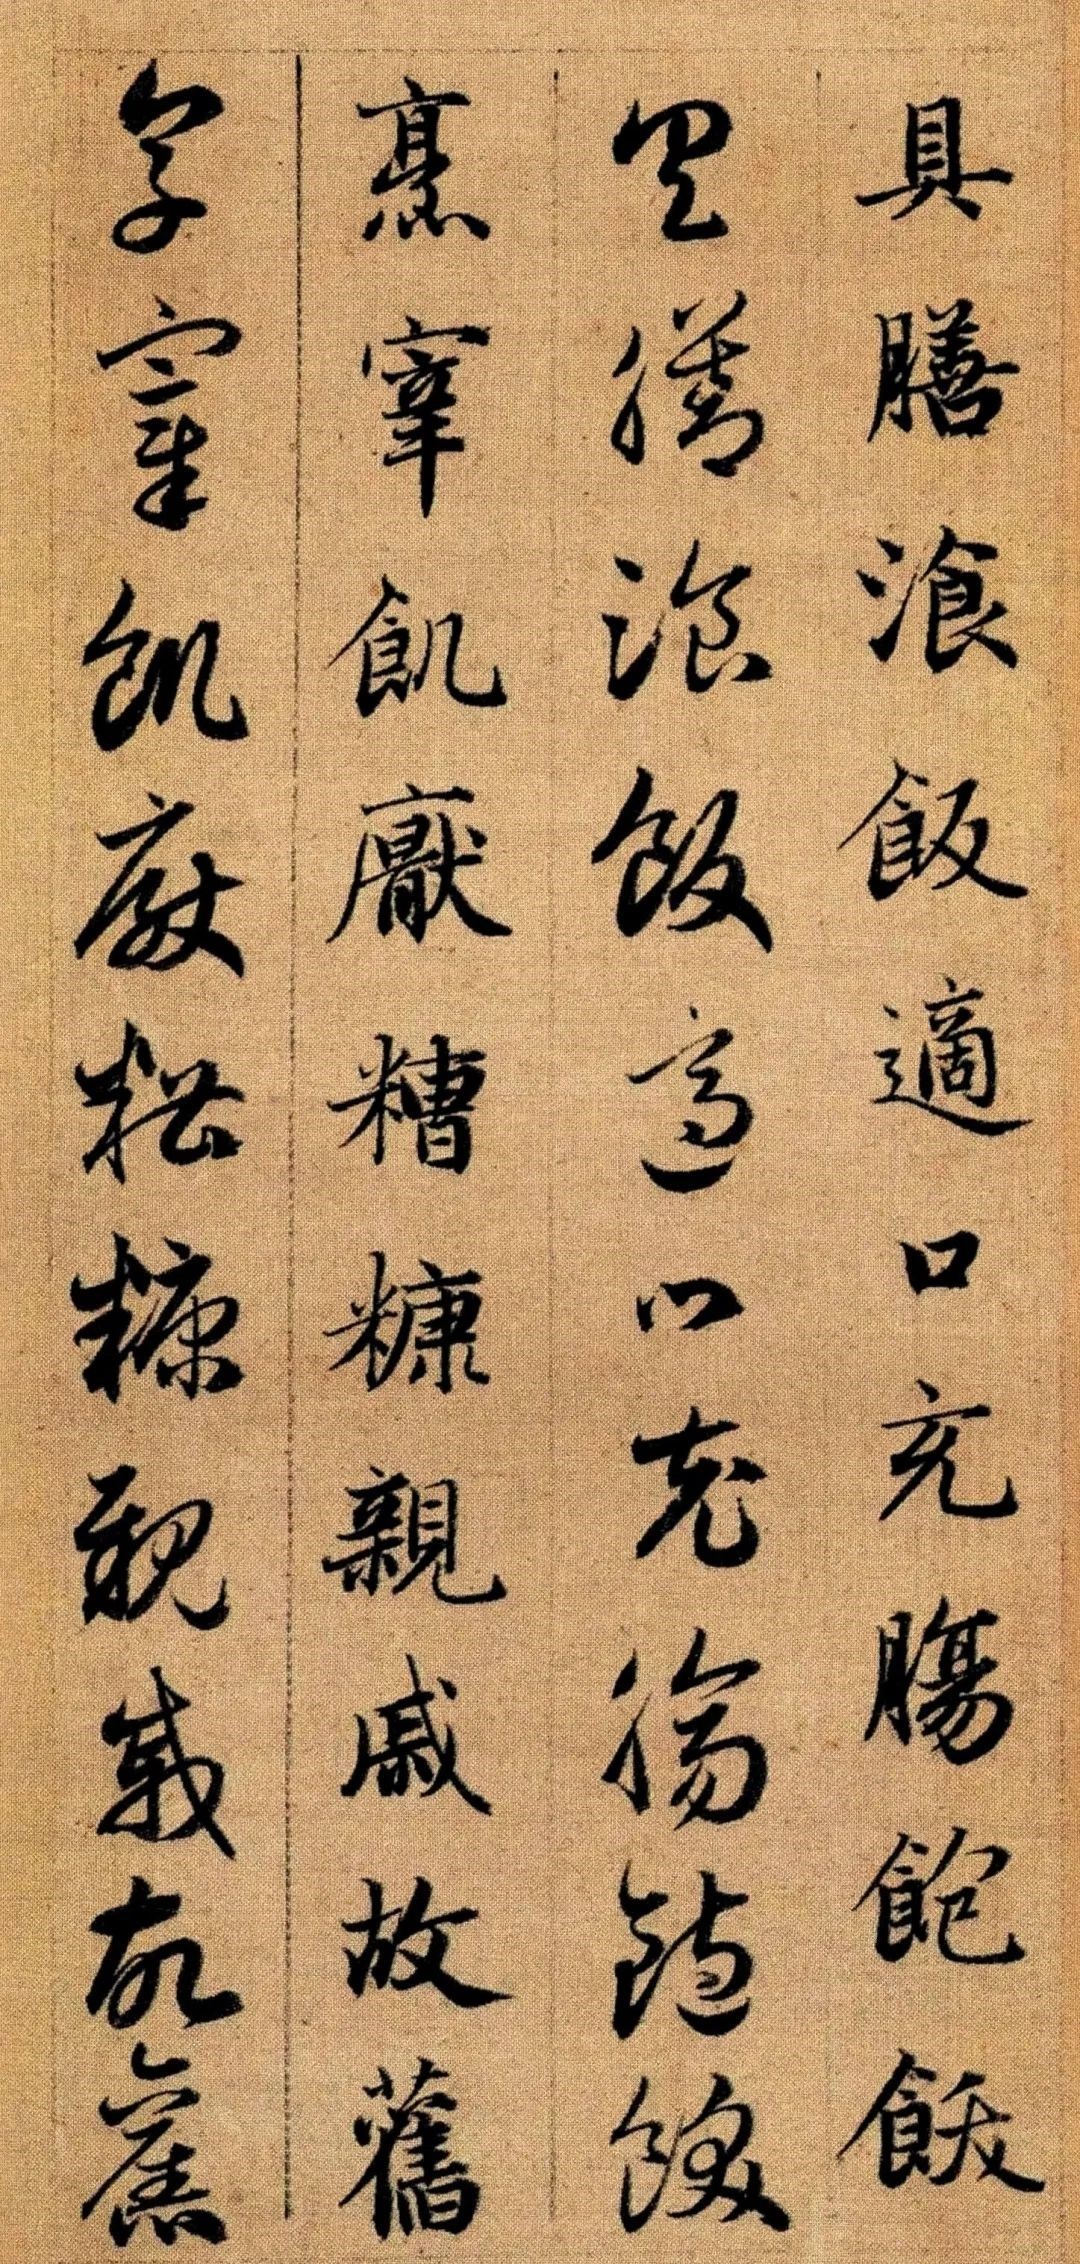 具膳飡飯適口充腸飽飫
具膳飡飯適口充腸飽飫
烹宰飢厭糟糠親戚故舊
烹宰飢厭糟糠親戚故舊